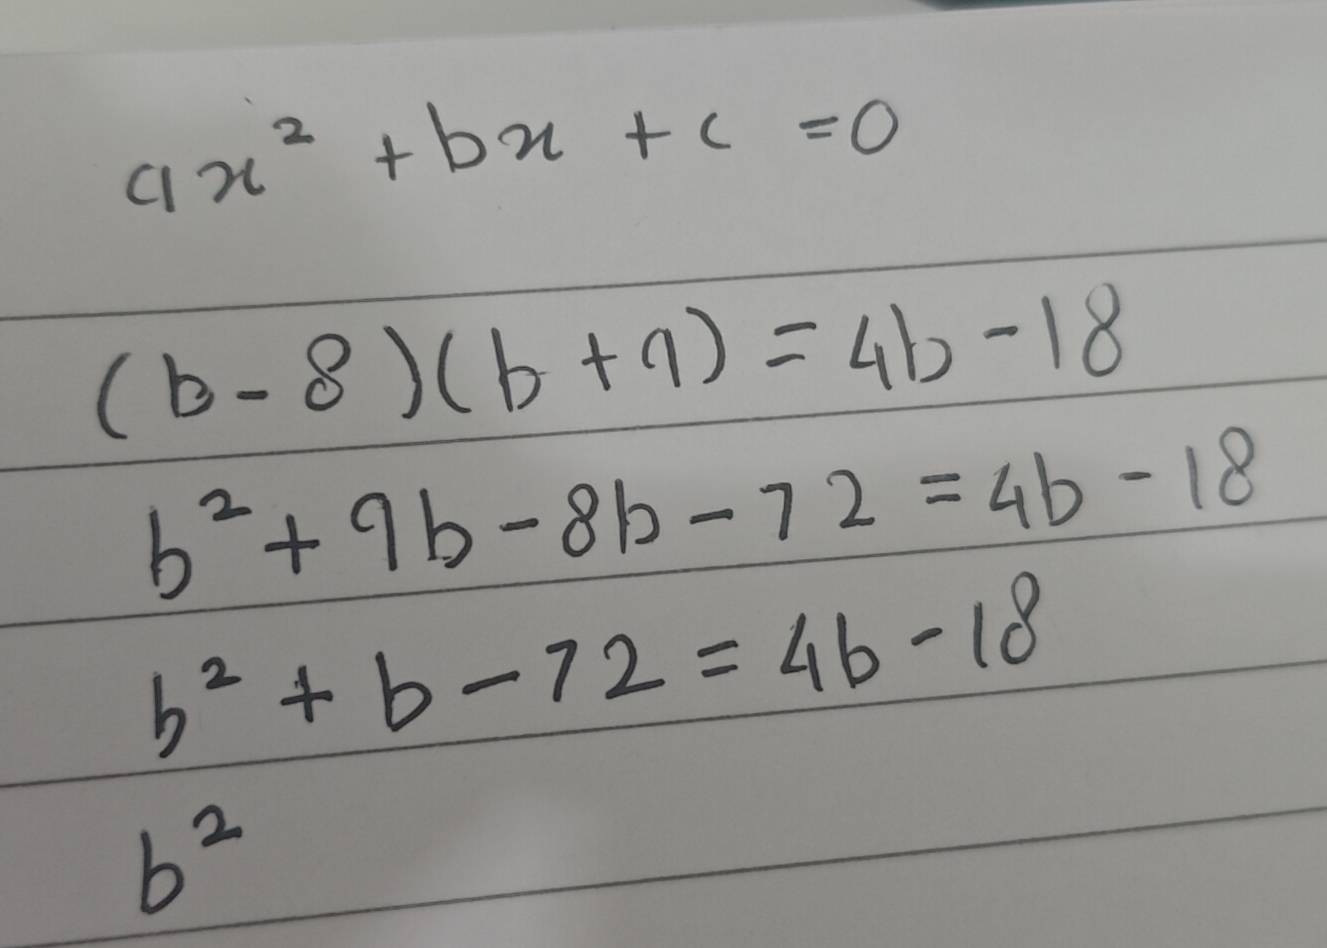 ax² + bx + c = 0
(b - 8)(b + 9) = 4b - 18
b² + 9b - 8b - 72 = 4b - 18
b² + b - 72 = 4b - 18
b²